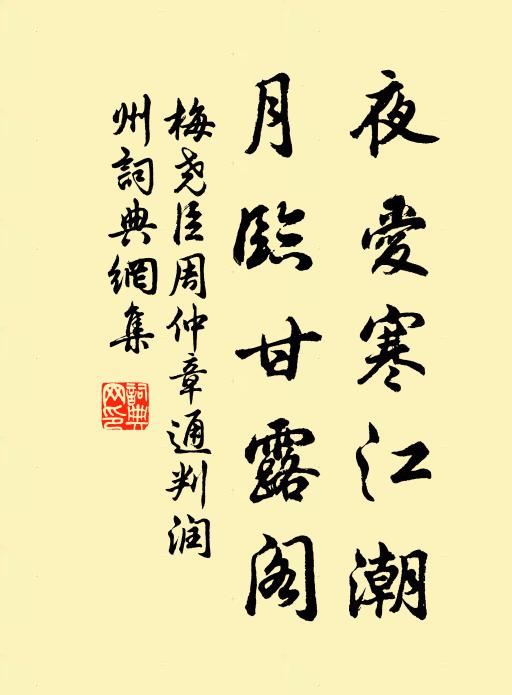 夜愛寒江潮
月臨甘露閣
梅尧臣周仲章通判润
州詞典網集
詞典
网印